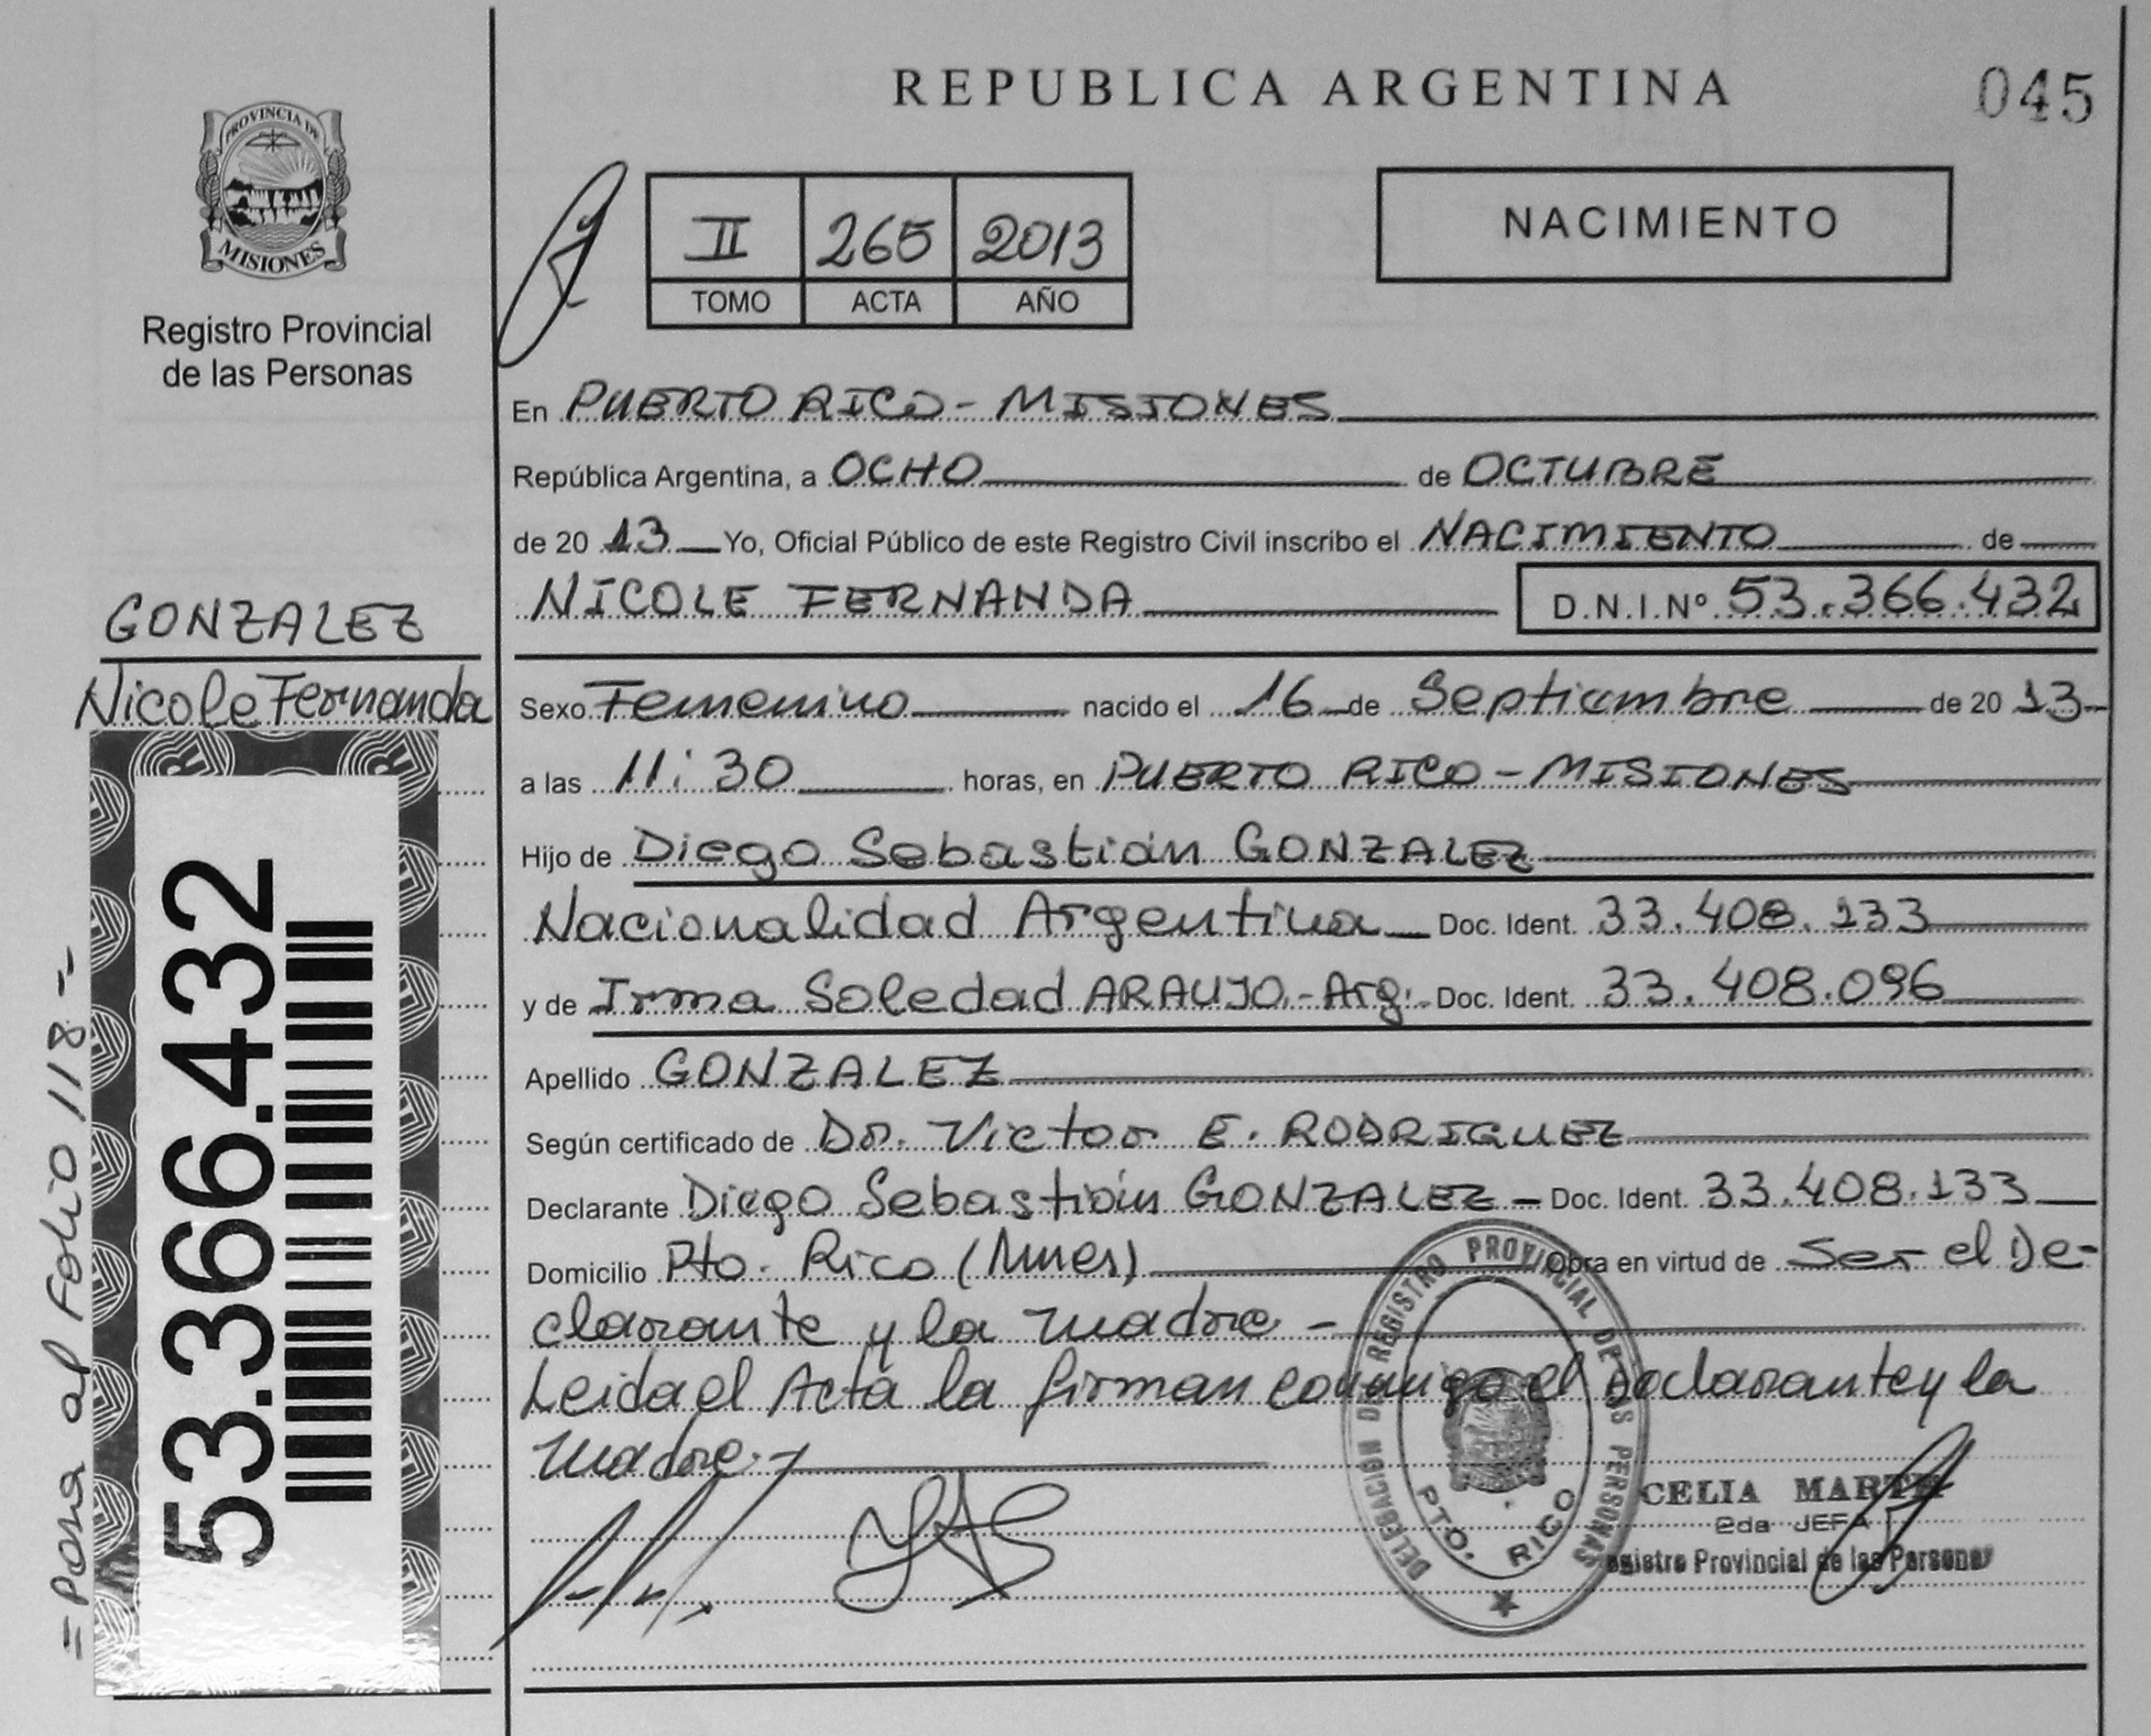 REPUBLICA ARGENTINA
045
PROVINCIA DE
MISIONES
Registro Provincial
de las Personas
II 265 2013
TOMO ACTA AÑO
NACIMIENTO
En PUERTO RICO - MISIONES
República Argentina, a OCHO de OCTUBRE
de 20 13 Yo, Oficial Público de este Registro Civil inscribo el NACIMIENTO de
NICOLE FERNANDA D.N.I.Nº 53.366.432
GONZALEZ
Nicole Fernanda
Sexo Femenino nacido el 16 de Septiembre de 20 13
a las 11:30 horas, en PUERTO RICO - MISIONES
Hijo de Diego Sebastián GONZALEZ
Nacionalidad Argentina Doc. Ident. 33.408.133
y de Irma Soledad ARAUJO.- Arg. Doc. Ident. 33.408.096
Apellido GONZALEZ
Según certificado de Dr. Victor E. RODRIGUEZ
Declarante Diego Sebastián GONZALEZ Doc. Ident. 33.408.133
Domicilio Pto. Rico (Mnes) Obra en virtud de Ser el De-
clarante y la madre -
Leida el Acta la firman conmigo el declarante y la
madre.-
53.366.432
= Pasa al Folio 118 --
DELEGACION DE REGISTRO PROVINCIAL DE LAS PERSONAS
PTO. RICO
CELIA
2da JEFA
Registro Provincial de las Personas